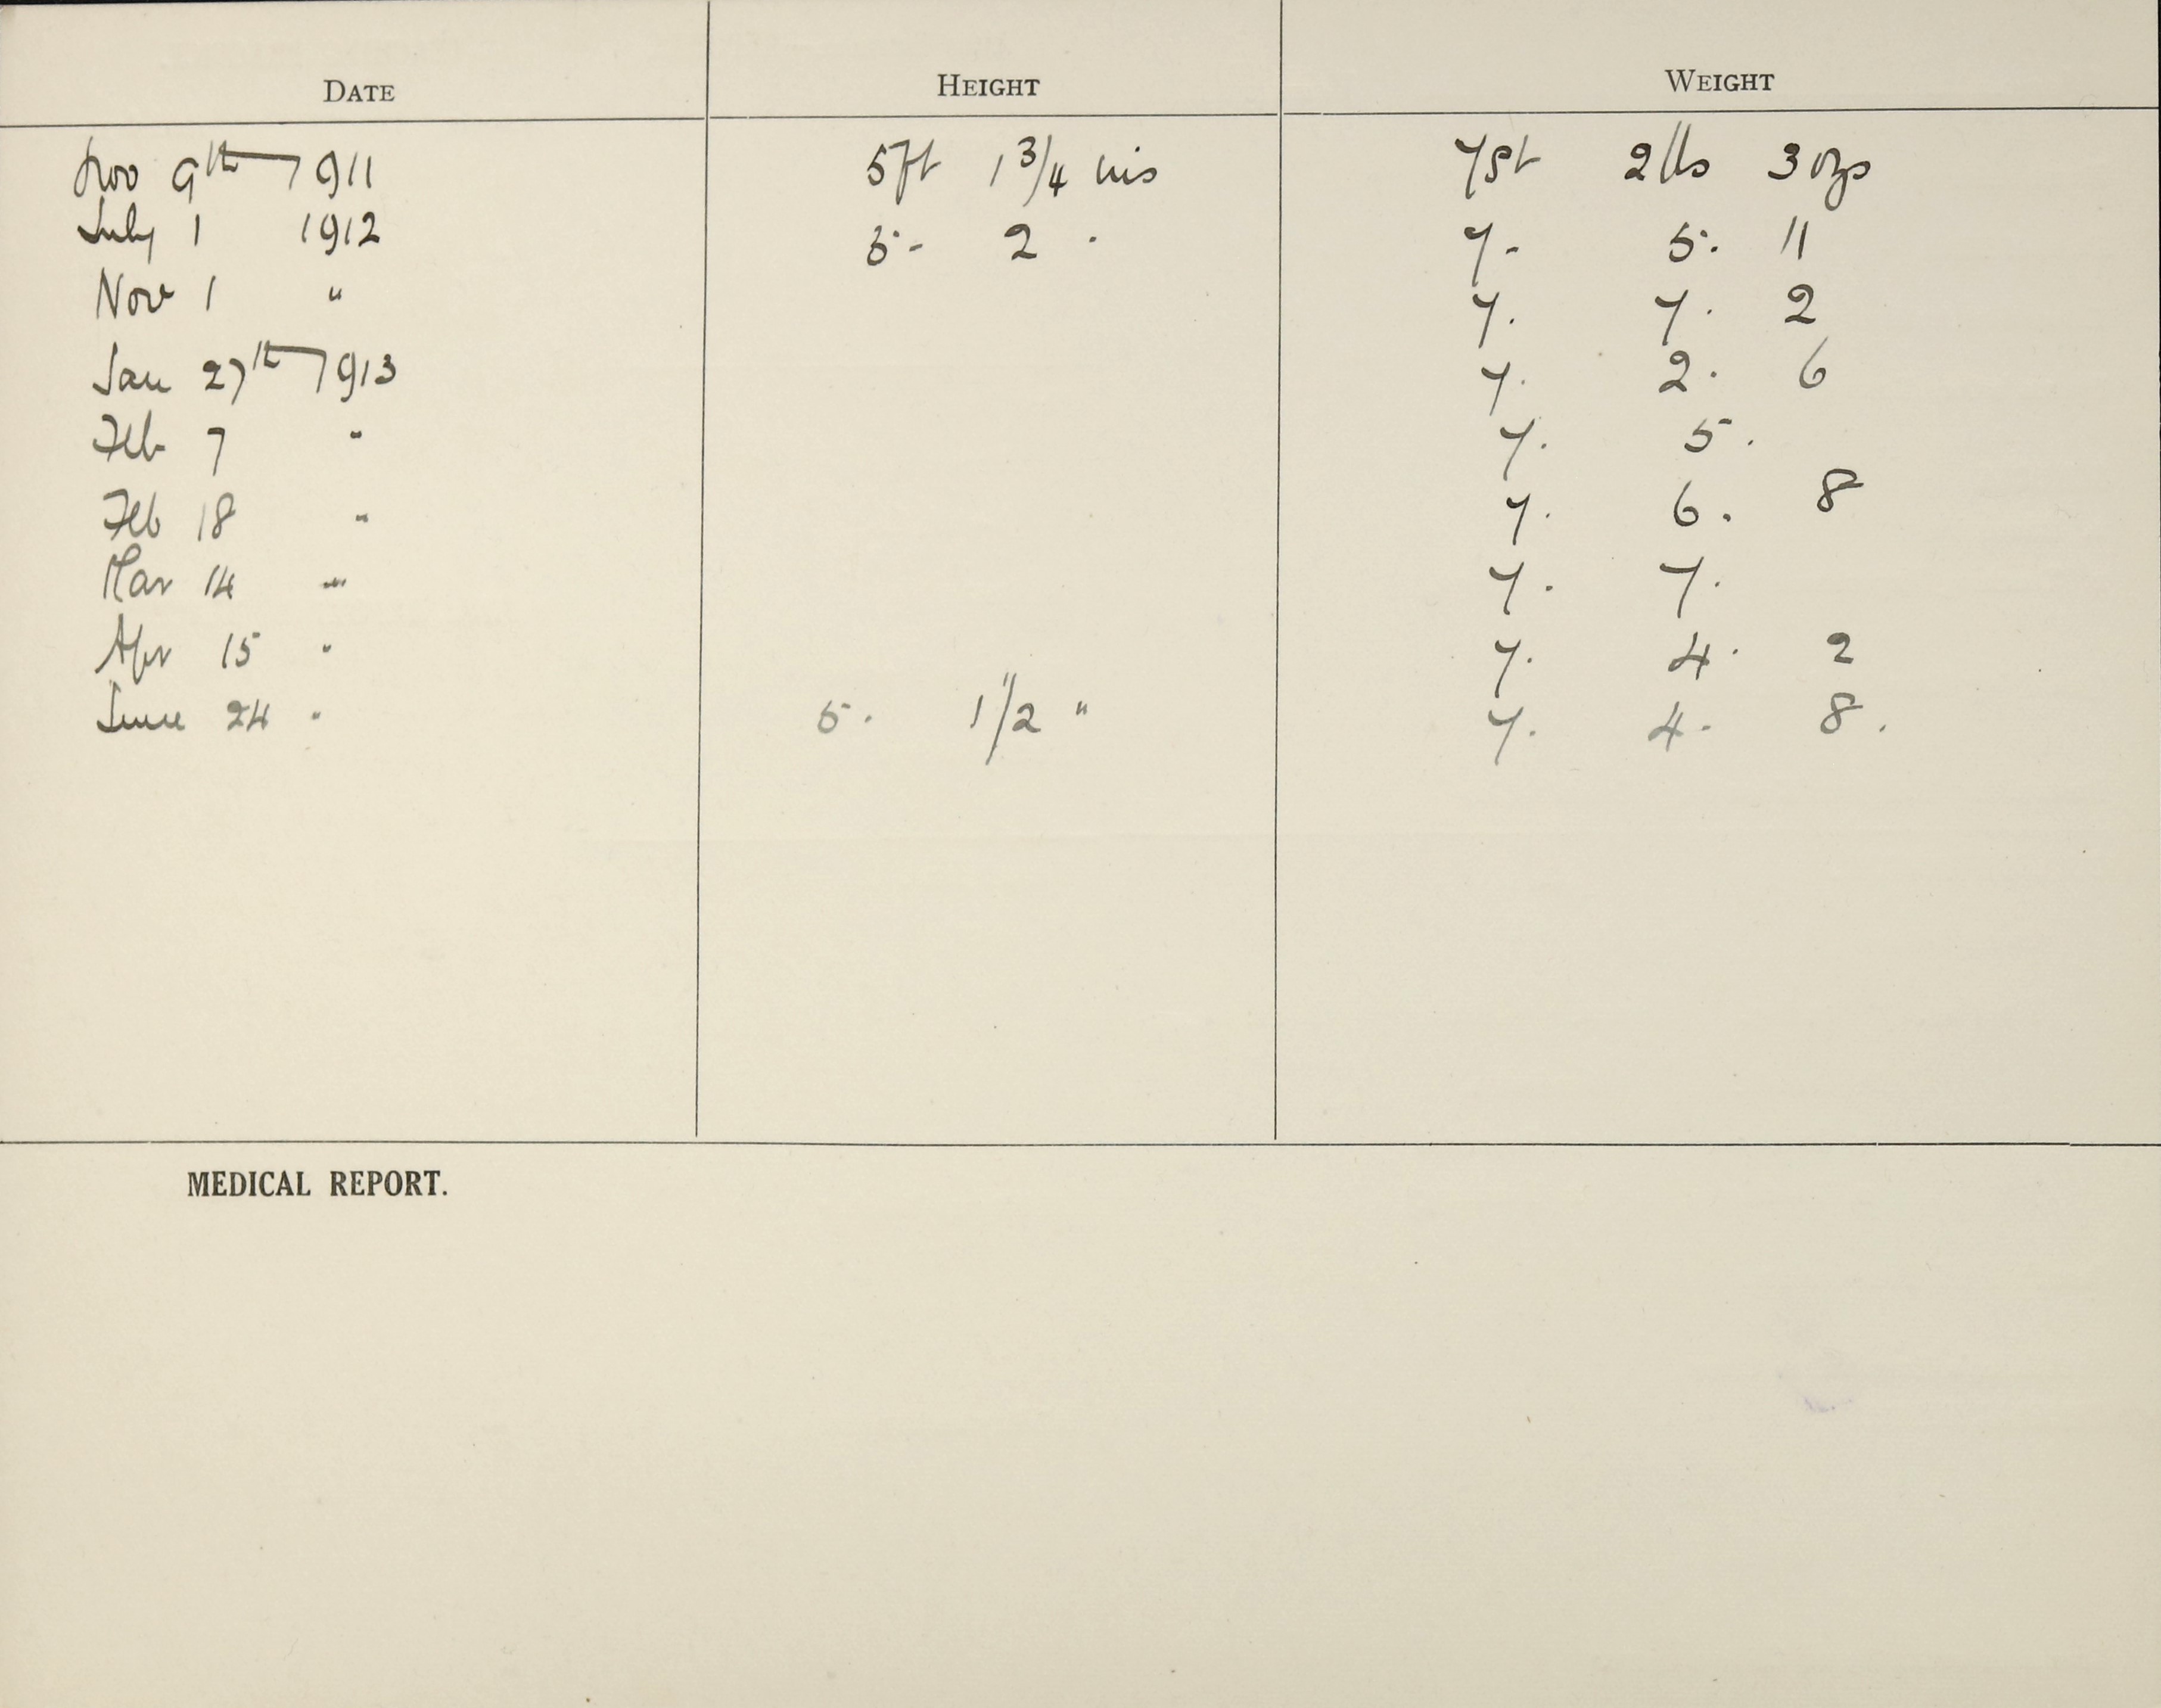 DATE HEIGHT WEIGHT
Nov 9th 1911 5ft 1 3/4 ins 7st 2lbs 3ozs
July 1 1912 5 - 2 . 7 - 5. 11
Nov 1 " 7. 7. 2
Jan 27th 1913 7. 2. 6
Feb 7 " 7. 5.
Feb 18 " 7. 6. 8
Mar 14 " 7. 7.
Apr 15 " 7. 4. 2
June 24 " 5. 1 1/2 " 7. 4. 8.
MEDICAL REPORT.